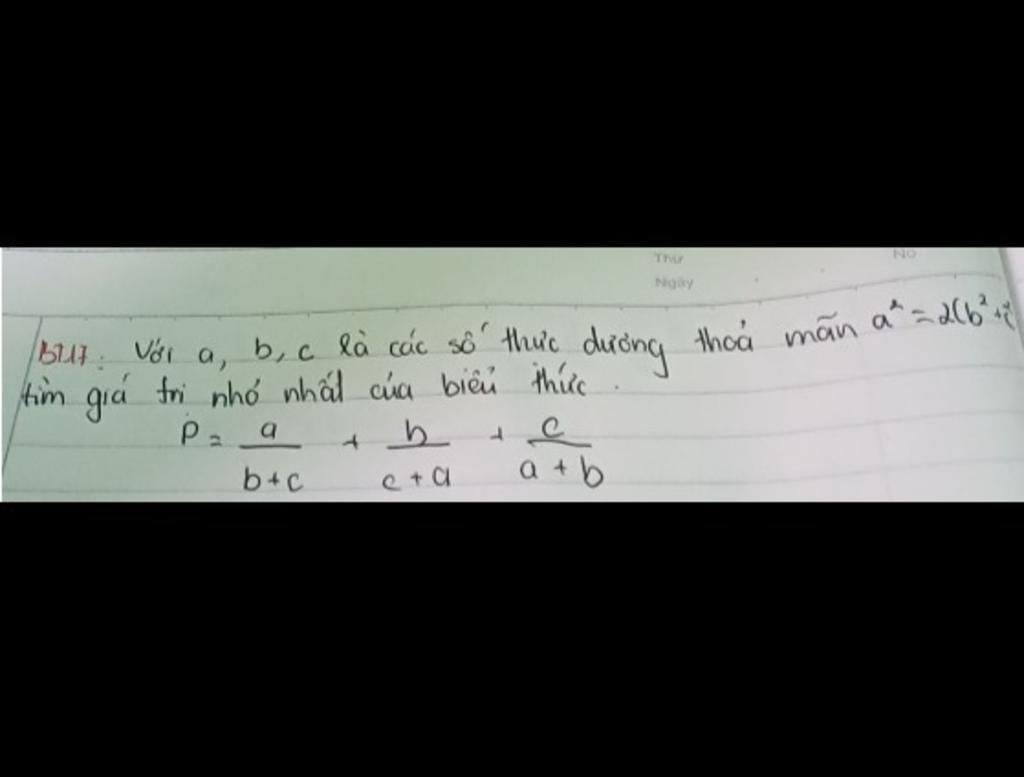 Thứ
Ngày
No
BT17: Với a, b, c là các số thực dương thoả mãn a² = 2(b² + c²
tìm giá trị nhỏ nhất của biểu thức.
P = a/(b+c) + b/(c+a) + c/(a+b)